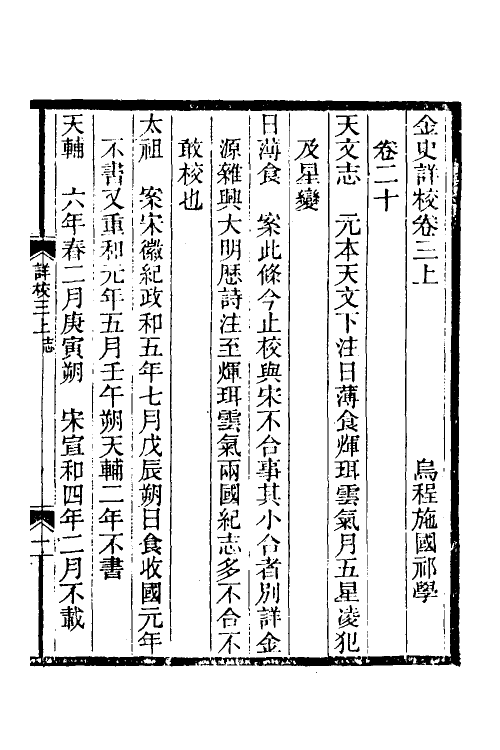 金史詳校卷三上　　　　烏程施國祁學
卷二十
天文志　元本天文下注日薄食煇珥雲氣月五星凌犯
及星變
日薄食　案此條今止校與宋不合事其小合者別詳金
源雜興大明歴詩注至煇珥雲氣兩國紀志多不合不
敢校也
太祖　案宋徽紀政和五年七月戊辰朔日食收國元年
不書又重和元年五月壬午朔天輔二年不書
天輔　六年春二月庚寅朔　宋宣和四年二月不載
詳校三上志　一